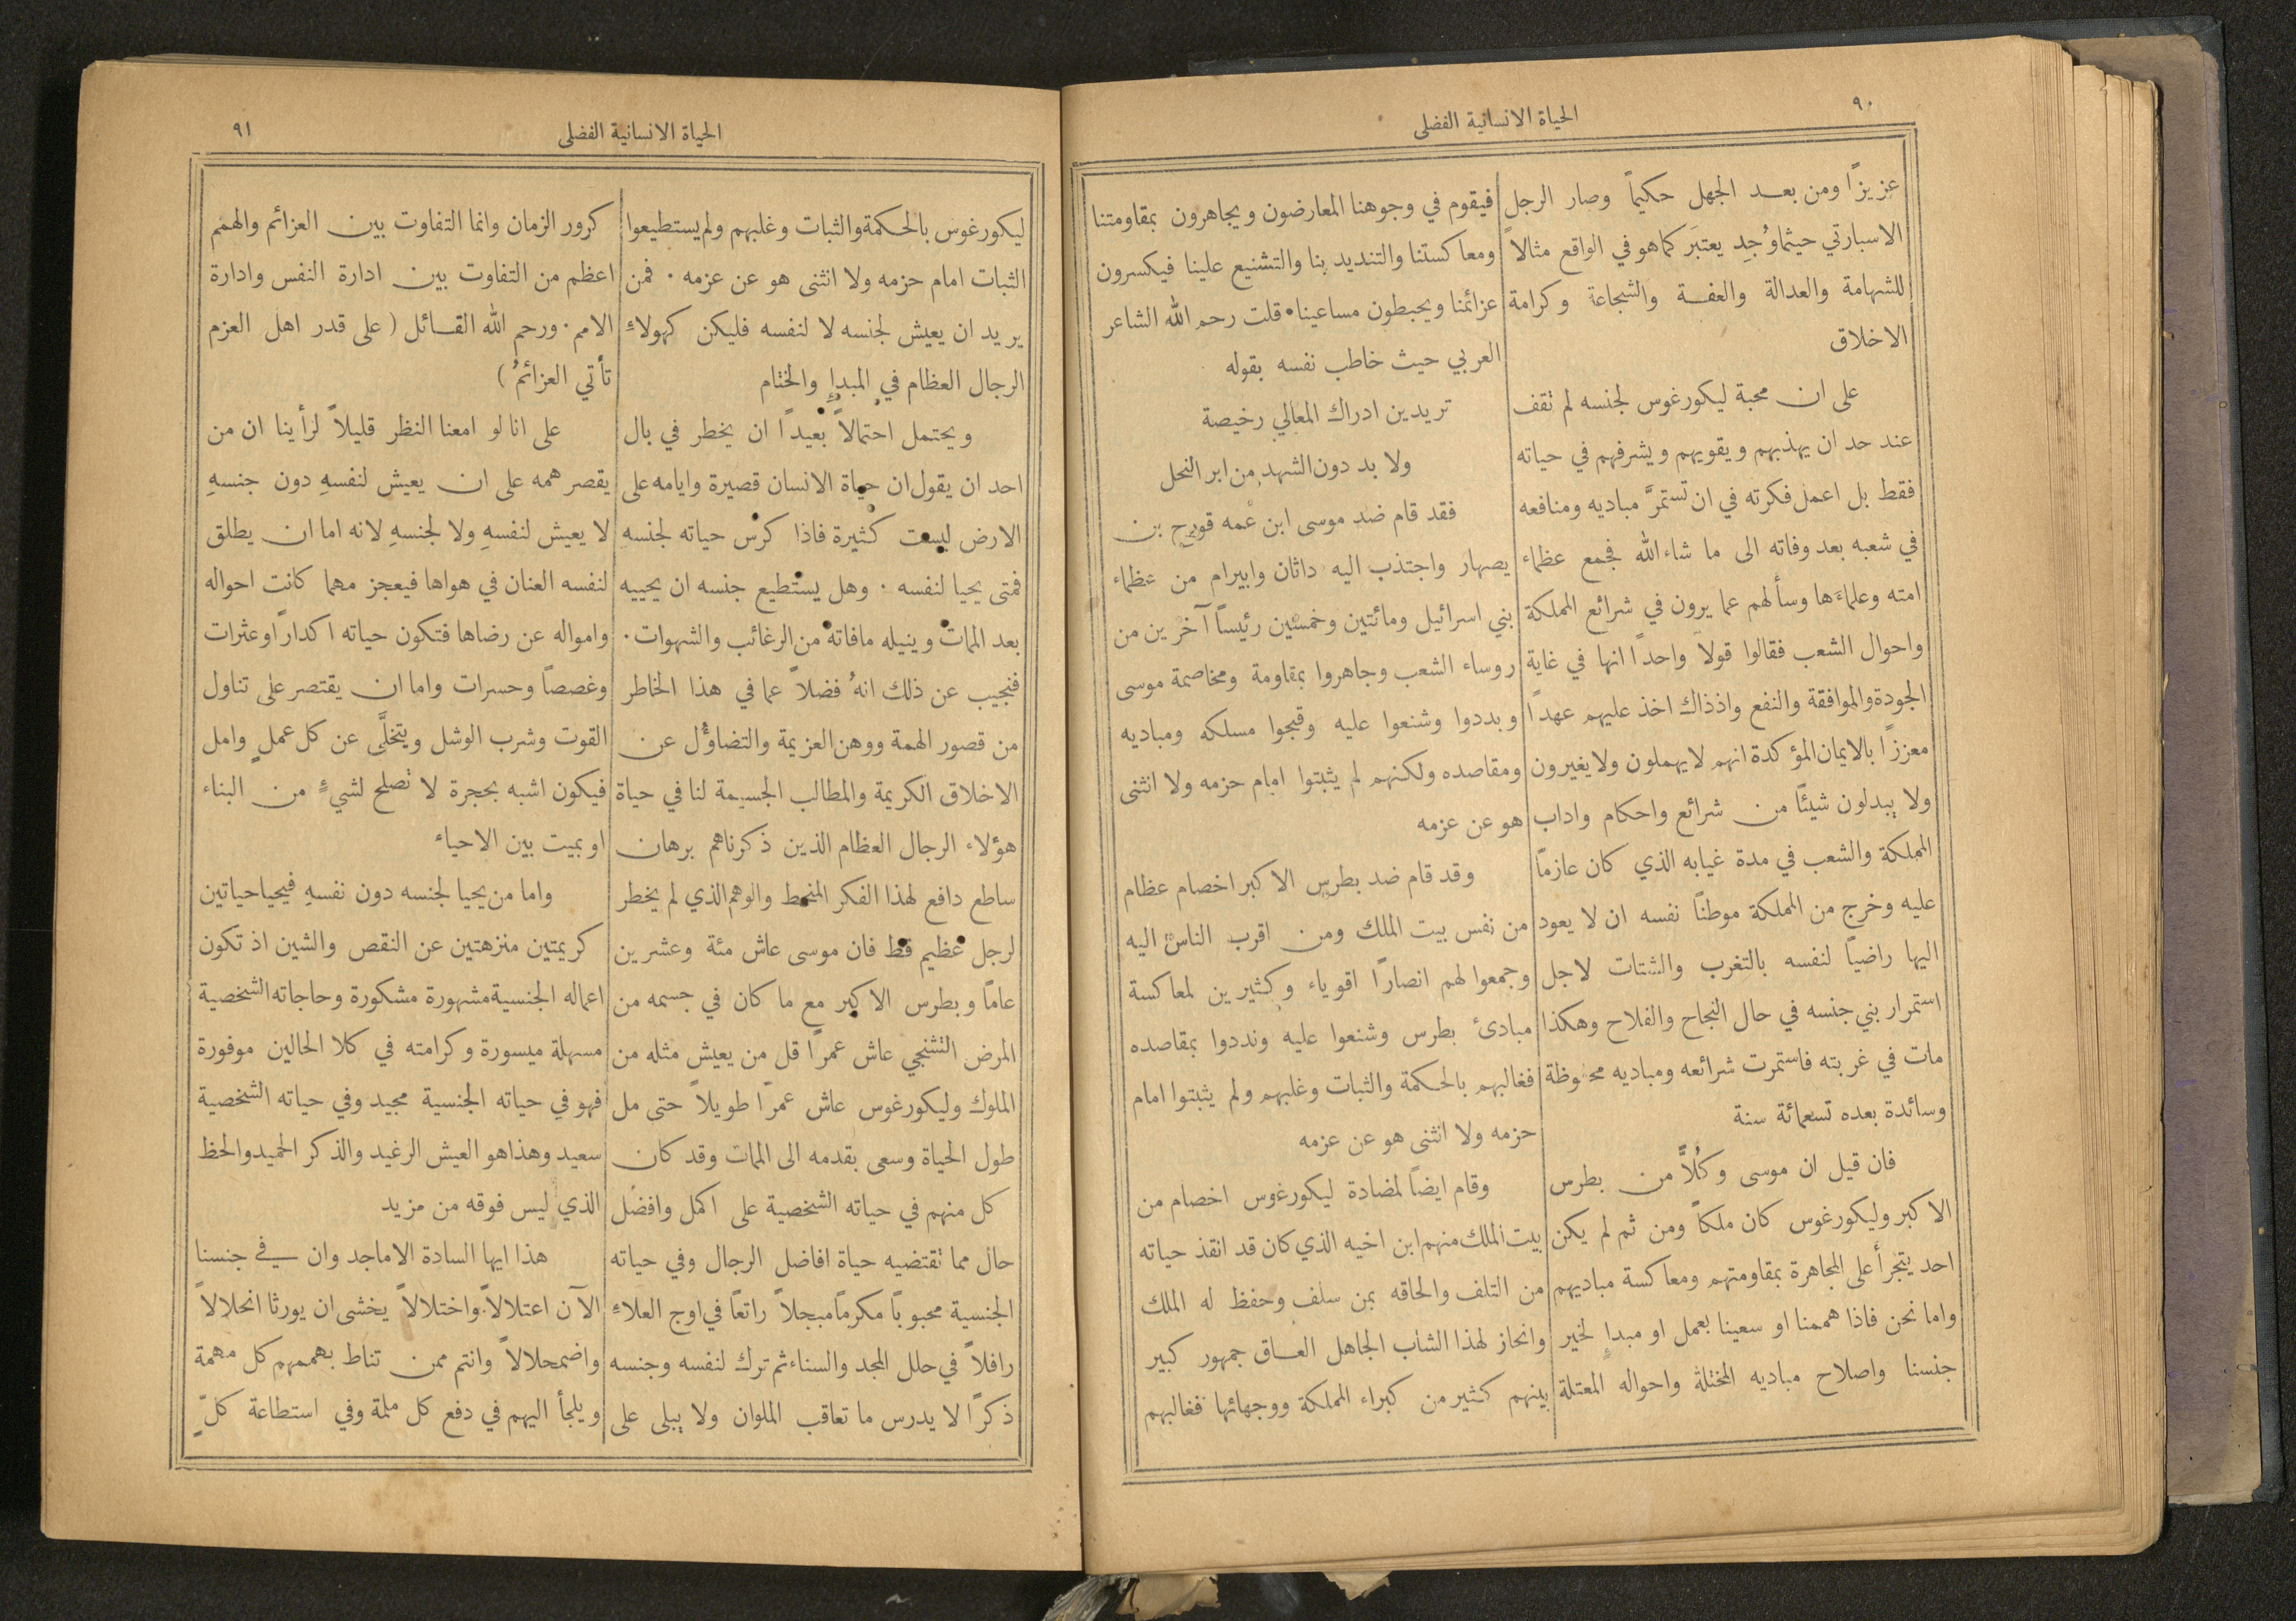 ٩٠
الحياة الانسانية الفضلى
عزيزًا ومن بعد الجهل حكيماً وصار الرجل
الاسبارتي حيثما وُجِد يعتبَر كما هو في الواقع مثالاً
للشهامة والعدالة والعفة والشجاعة وكرامة
الاخلاق
على ان محبة ليكورغوس لجنسه لم تقف
عند حد ان يهذبهم ويقويهم ويشرفهم في حياته
فقط بل اعمل فكرته في ان تستمرَّ مباديه ومنافعه
في شعبه بعد وفاته الى ما شاء الله فجمع عظماء
امته وعلماءَها وسألهم عما يرون في شرائع المملكة
واحوال الشعب فقالوا قولاً واحداً انها في غاية
الجودة والموافقة والنفع واذذاك اخذ عليهم عهداً
معززاً بالايمان المؤكدة انهم لا يهملون ولا يغيرون
ولا يبدلون شيئًا من شرائع واحكام واداب
المملكة والشعب في مدة غيابه الذي كان عازماً
عليه وخرج من المملكة موطناً نفسه ان لا يعود
اليها راضياً لنفسه بالتغرب والشتات لاجل
استمرار بني جنسه في حال النجاح والفلاح وهكذا
مات في غربته فاستمرت شرائعه ومباديه محفوظة
وسائدة بعده تسعمائة سنة
فان قيل ان موسى وكُلاًّ من بطرس
الاكبر وليكورغوس كان ملكاً ومن ثم لم يكن
احد يتجرأ على المجاهرة بمقاومتهم ومعاكسة مباديهم
واما نحن فاذا هممنا او سعينا بعمل او مبدإٍ لخير
جنسنا واصلاح مباديه المختلة واحواله المعتلة
فيقوم في وجوهنا المعارضون ويجاهرون بمقاومتنا
ومعاكستنا والتنديد بنا والتشنيع علينا فيكسرون
عزائمنا ويحبطون مساعينا. قلت رحم الله الشاعر
العربي حيث خاطب نفسه بقوله
تريدين ادراك المعالي رخيصة
ولا بد دون الشهد من ابر النحل
فقد قام ضد موسى ابن عمه قورح بن
يصهار واجتذب اليه داثان وابيرام من عظماء
بني اسرائيل ومائتين وخمسين رئيساً آخرين من
روساء الشعب وجاهروا بمقاومة ومخاصمة موسى
وبددوا وشنعوا عليه وقبحوا مسلكه ومباديه
ومقاصده ولكنهم لم يثبتوا امام حزمه ولا انثنى
هو عن عزمه
وقد قام ضد بطرس الاكبر اخصام عظام
من نفس بيت الملك ومن اقرب الناس اليه
وجمعوا لهم انصارًا اقوياء وكثيرين لمعاكسة
مبادئ بطرس وشنعوا عليه ونددوا بمقاصده
فغالبهم بالحكمة والثبات وغلبهم ولم يثبتوا امام
حزمه ولا انثنى هو عن عزمه
وقام ايضاً لمضادة ليكورغوس اخصام من
بيت الملك منهم ابن اخيه الذي كان قد انقذ حياته
من التلف والحاقه بمن سلف وحفظ له الملك
وانحاز لهذا الشاب الجاهل العاق جمهور كبير
بينهم كثير من كبراء المملكة ووجهائها فغالبهم
الحياة الانسانية الفضلى
٩١
ليكورغوس بالحكمة والثبات وغلبهم ولم يستطيعوا
الثبات امام حزمه ولا انثنى هو عن عزمه. فمن
يريد ان يعيش لجنسه لا لنفسه فليكن كهولاءِ
الرجال العظام في المبدإِ والختام
ويحتمل احتمالاً بعيدًا ان يخطر في بال
احد ان يقول ان حياة الانسان قصيرة وايامه على
الارض ليست كثيرة فاذا كرس حياته لجنسهِ
فمتى يحيا لنفسه. وهل يستطيع جنسه ان يحييه
بعد الممات وينيله مافاته من الرغائب والشهوات.
فنجيب عن ذلك انهُ فضلاً عما في هذا الخاطر
من قصور الهمة ووهن العزيمة والتضاؤُل عن
الاخلاق الكريمة والمطالب الجسيمة لنا في حياة
هؤلاء الرجال العظام الذين ذكرناهم برهان
ساطع دافع لهذا الفكر المنحط والوهم الذي لم يخطر
لرجل عظيم قط فان موسى عاش مئة وعشرين
عاماً وبطرس الاكبر مع ما كان في جسمه من
المرض التشنجي عاش عمرًا قل من يعيش مثله من
الملوك وليكورغوس عاش عمرًا طويلاً حتى مل
طول الحياة وسعى بقدمه الى الممات وقد كان
كل منهم في حياته الشخصية على اكمل وافضل
حال مما تقتضيه حياة افاضل الرجال وفي حياته
الجنسية محبوبًا مكرمًا مبجلاً راتعًا في اوج العلاءِ
رافلاً في حلل المجد والسناء ثم ترك لنفسه وجنسه
ذكرًا لا يدرس ما تعاقب الملوان ولا يبلى على
كرور الزمان وانما التفاوت بين العزائم والهمم
اعظم من التفاوت بين ادارة النفس وادارة
الامم. ورحم الله القائل (على قدر اهل العزم
تأتي العزائمُ)
على انا لو امعنا النظر قليلاً لرأينا ان من
يقصر همه على ان يعيش لنفسهِ دون جنسهِ
لا يعيش لنفسهِ ولا لجنسهِ لانه اما ان يطلق
لنفسه العنان في هواها فيعجز مهما كانت احواله
وامواله عن رضاها فتكون حياته اكداراً وعثرات
وغصصاً وحسرات واما ان يقتصر على تناول
القوت وشرب الوشل ويتخلَّى عن كل عملٍ وامل
فيكون اشبه بحجرة لا تصلح لشيءٍ من البناء
او بميت بين الاحياء
واما من يحيا لجنسه دون نفسهِ فيحيا حياتين
كريمتين منزهتين عن النقص والشين اذ تكون
اعماله الجنسية مشهورة مشكورة وحاجاته الشخصية
مسهلة ميسورة وكرامته في كلا الحالين موفورة
فهو في حياته الجنسية مجيد وفي حياته الشخصية
سعيد وهذا هو العيش الرغيد والذكر الحميد والحظ
الذي ليس فوقه من مزيد
هذا ايها السادة الاماجد وان في جنسنا
الآن اعتلالاً واختلالاً يخشى ان يورثا انحلالاً
واضمحلالاً وانتم ممن تناط بهممهم كل مهمة
ويلجأ اليهم في دفع كل ملمة وفي استطاعة كلّ